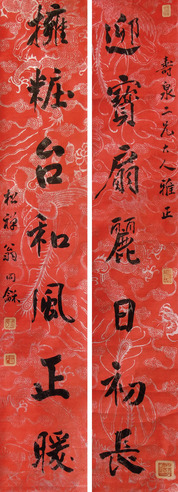 壽泉二兄大人雅正
迎寶扇麗日初長
擁粧台和風正暖
松禪翁同龢